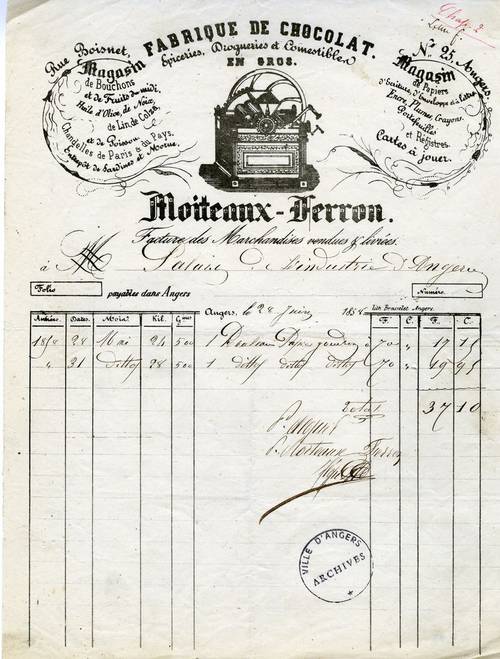 Chap. 2
FABRIQUE DE CHOCOLAT.
Epiceries, Drogueries et Comestibles
EN GROS.
Rue Boisnet,
N° 25, Angers.
Magasin
de Bouchons
et de Fruits du midi,
Huile d'Olive, de Noix,
de Lin, de Colza,
et de Poisson
Chandelles de Paris & du Pays.
Entrepôt de Sardines et Morue.
Magasin
de Papiers
d'Ecriture, d'Enveloppe et à Lettre
Encre, Plumes, Crayons,
Portefeuilles
et Registres.
Cartes à jouer.
Moiteaux-Ferron.
Facture des Marchandises vendues & livrées
à MM Palais de l'industrie d'Angers
Folio
payables dans Angers
Numéro
Angers, le 28 Juin 1858
Lith. Angers.
Années. Dates. Mois. Kil. Gmes F. C. F. C.
1858 28 Mai 24 500 1 70 " 17 15
" 31 ditto 28 500 1 ditto ditto ditto 70 " 19 95
Total 37 10
P. acquit
P. Moiteaux Ferron
VILLE D'ANGERS
ARCHIVES